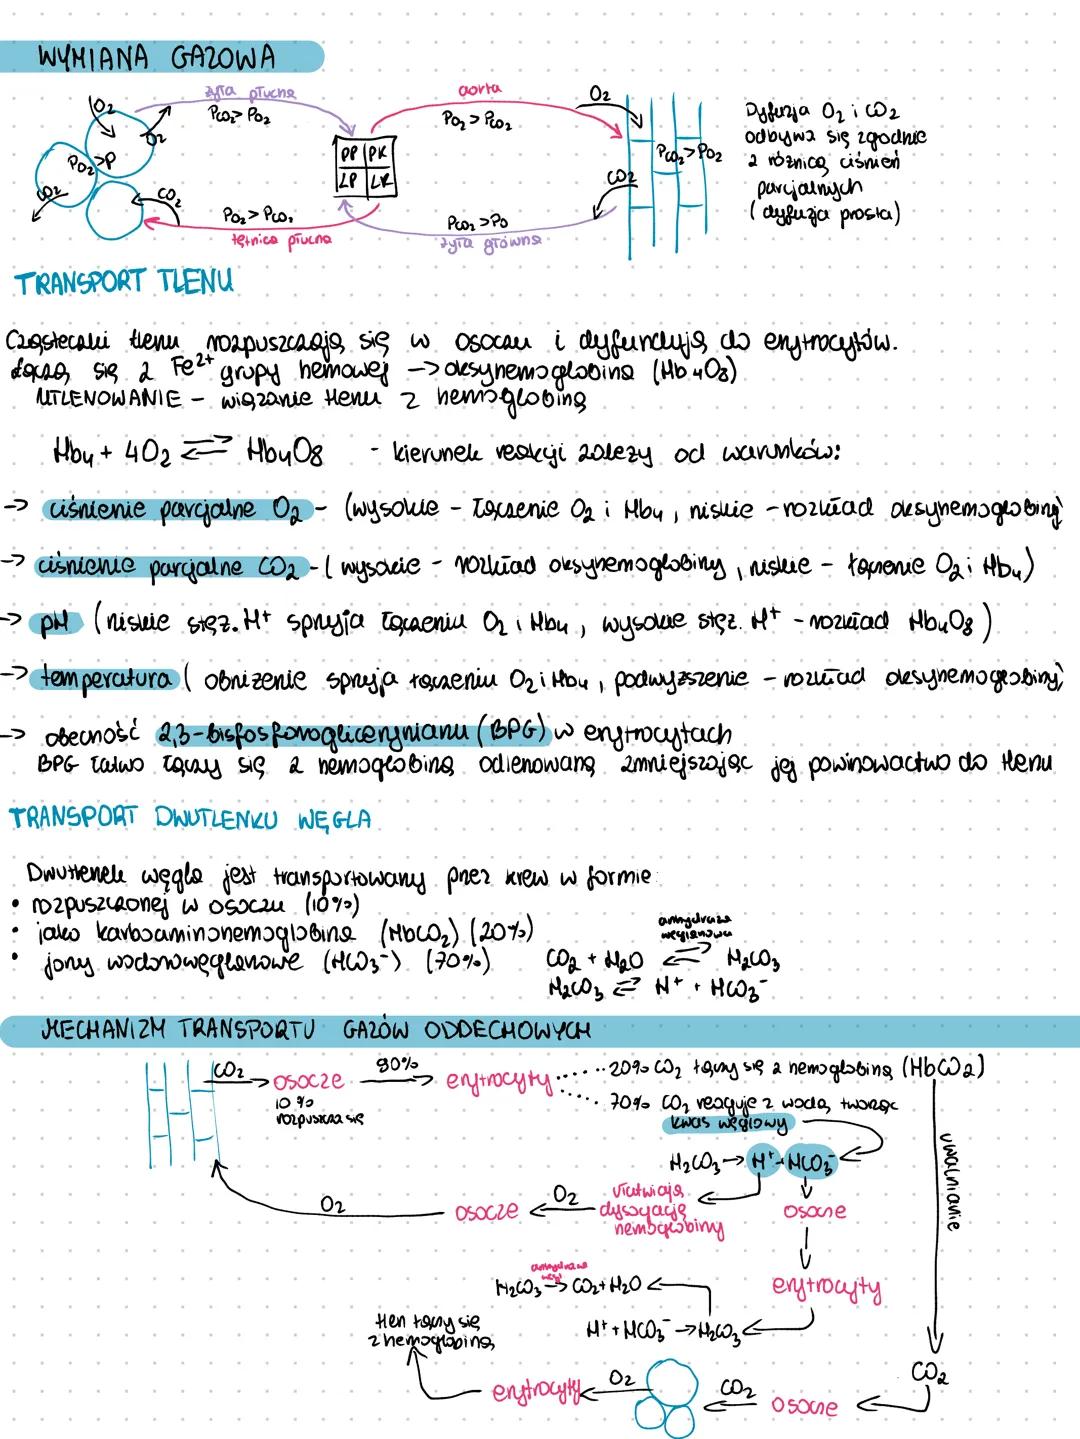 WYMIANA GAZOWA
żyła płucna
PCO2 > PO2
aorta
PO2 > PCO2
O2
O2
PO2 > P
CO2
CO2
PP PK
LP LK
O2
CO2
PCO2 > PO2
PO2 > PCO2
tętnica płucna
PCO2 > PO
żyła główna
Dyfuzja O2 i CO2
odbywa się zgodnie
z różnicą ciśnień
parcjalnych
(dyfuzja prosta)
TRANSPORT TLENU
Cząsteczki tlenu rozpuszczają się w osoczu i dyfundują do erytrocytów.
Łączą się z Fe2+ grupy hemowej → oksyhemoglobina (Hb4O8)
UTLENOWANIE - wiązanie tlenu z hemoglobiną
Hb4 + 4O2 ⇌ Hb4O8 - kierunek reakcji zależy od warunków:
→ ciśnienie parcjalne O2 - (wysokie - łączenie O2 i Hb4, niskie - rozkład oksyhemoglobiny)
→ ciśnienie parcjalne CO2 - (wysokie - rozkład oksyhemoglobiny, niskie - łączenie O2 i Hb4)
→ pH (niskie stęż. H+ sprzyja łączeniu O2 i Hb4, wysokie stęż. H+ - rozkład Hb4O8)
→ temperatura (obniżenie sprzyja łączeniu O2 i Hb4, podwyższenie - rozkład oksyhemoglobiny)
→ obecność 2,3-bisfosfonoglicerynianu (BPG) w erytrocytach
BPG łatwo łączy się z hemoglobiną odtlenowaną zmniejszając jej powinowactwo do tlenu
TRANSPORT DWUTLENKU WĘGLA
Dwutlenek węgla jest transportowany przez krew w formie:
• rozpuszczonej w osoczu (10%)
• jako karboaminohemoglobina (HbCO2) (20%)
• jony wodorowęglanowe (HCO3-) (70%)
anhydraza
węglanowa
CO2 + H2O ⇌ H2CO3
H2CO3 ⇌ H+ + HCO3-
MECHANIZM TRANSPORTU GAZÓW ODDECHOWYCH
CO2 → osocze 90% → erytrocyty ..... 20% CO2 łączy się z hemoglobiną (HbCO2)
10%
rozpuszcza się
70% CO2 reaguje z wodą tworząc
kwas węglowy
H2CO3 → H+ + HCO3-
uwalnianie
O2
osocze ← O2
ułatwiają
dysocjację
hemoglobiny
osocze
erytrocyty
anhydraza
węgl
H2CO3 → CO2 + H2O
H+ + HCO3- → H2CO3
tlen łączy się
z hemoglobiną
erytrocyty ← O2
CO2
osocze
CO2